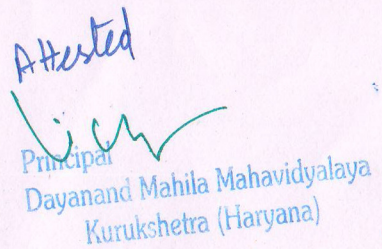 Attested
Principal
Dayanand Mahila Mahavidyalaya
Kurukshetra (Haryana)